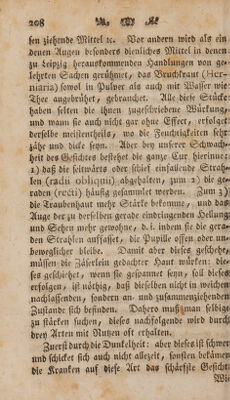 208
sen ziehende Mittel ꝛc. Vor andern wird als ein
denen Augen besonders dienliches Mittel in denen
zu Leipzig herauskommenden Handlungen von ge-
lehrten Sachen gerühmet, das Bruchkraut (Her-
niaria) sowol in Pulver als auch mit Wasser wie
Thee angebrühet, gebrauchet. Alle diese Stücke
haben selten die ihnen zugeschriebene Würkung,
und wann sie auch nicht gar ohne Effect, erfolget
derselbe meistentheils, wo die Feuchtigkeiten sehr
zähe und dicke seyn. Aber bey unserer Schwach-
heit des Gesichtes bestehet die ganze Cur hierinne:
1) daß die seitwärts oder schief einfallende Strah-
len (radii obliquii) abgehalten, zum 2) die ge-
raden (recti) häufig gesammlet werden. Zum 3)
die Traubenhaut mehr Stärke bekomme, und das
Auge der zu derselben gerade eindringenden Hellung
und Sehen mehr gewohne, d.i. indem sie die gera-
den Strahlen auffasset, die Pupille offen oder un-
beweglicher bleibe. Damit aber dieses geschehe,
müssen die Zäserlein gedachter Haut würken: die-
ses geschiehet, wenn sie gespannet seyn, soll dieses
erfolgen, ist nöthig, daß dieselben nicht in weichen
nachlassenden, sondern an- und zusammenziehenden
Zustande sich befinden. Dahero muß man selbige
zu stärken suchen, dieses nachfolgende wird durch
drey Arten mit Nutzen oft erhalten.
Zuerst durch die Dunkelheit: aber dieses ist schwer
und schicket sich auch nicht allezeit, sonsten bekämen
die Kranken auf diese Art das schärfste Gesicht
Wie